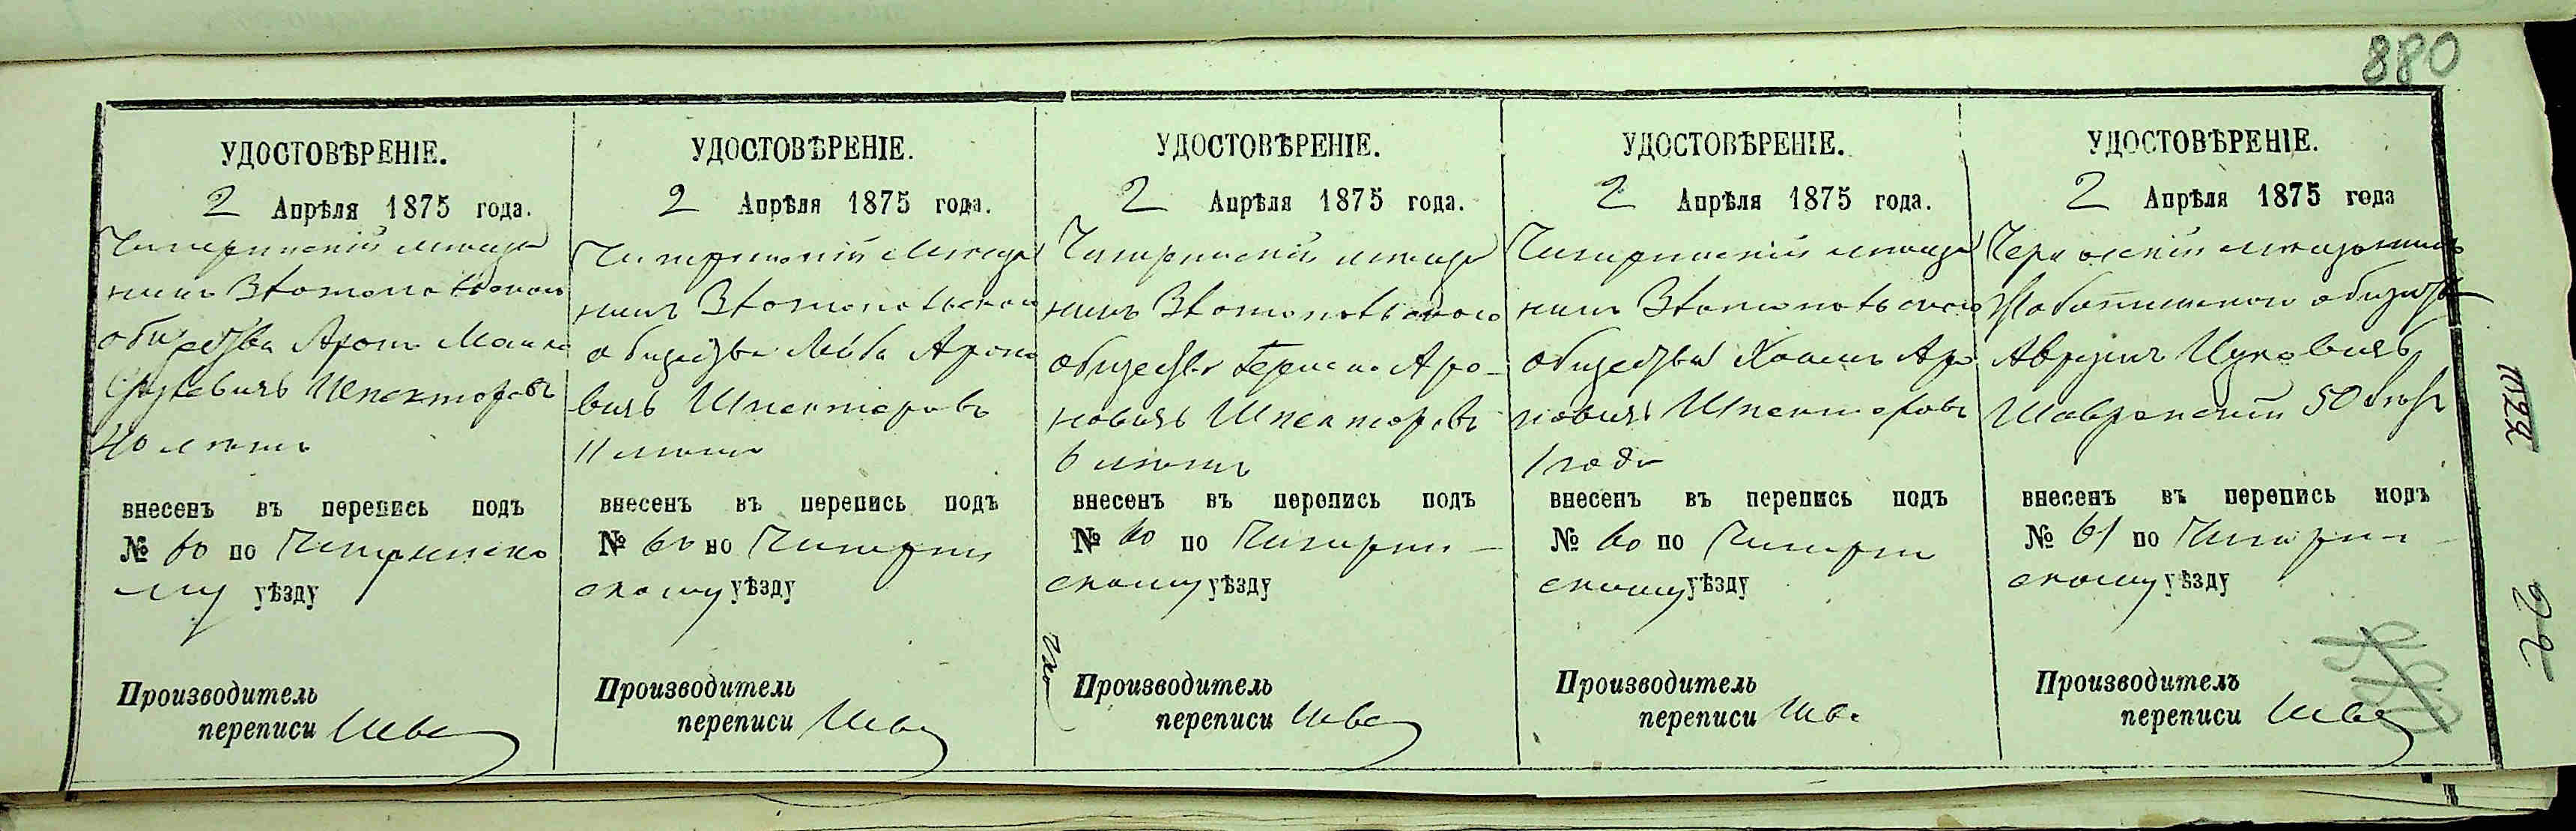 880
УДОСТОВѢРЕНІЕ.
2 Апрѣля 1875 года.
Чигиринскій мѣща
нинъ Златопольского
общества Аронъ
Шпекторовъ
40 лѣтъ
внесенъ въ перепись подъ
№ 60 по Чигиринско
му уѣзду
Производитель
переписи
УДОСТОВѢРЕНІЕ.
2 Апрѣля 1875 года.
Чигиринскій мѣща
нинъ Златопольского
общества Лейба Ароно
вичъ Шпекторовъ
11 лѣтъ
внесенъ въ перепись подъ
№ 60 по Чигирин
скому уѣзду
Производитель
переписи
УДОСТОВѢРЕНІЕ.
2 Апрѣля 1875 года.
Чигиринскій мѣща
нинъ Златопольского
общества Аро-
новичъ Шпекторовъ
6 лѣтъ
внесенъ въ перепись подъ
№ 60 по Чигирин-
скому уѣзду
Производитель
переписи
УДОСТОВѢРЕНІЕ.
2 Апрѣля 1875 года.
Чигиринскій мѣща
нинъ Златопольского
общества Хаимъ Аро
новичъ Шпекторовъ
1 года
внесенъ въ перепись подъ
№ 60 по Чигирин
скому уѣзду
Производитель
переписи
УДОСТОВѢРЕНІЕ.
2 Апрѣля 1875 года
мѣщанинъ
общества
50 лѣтъ
внесенъ въ перепись подъ
№ 61 по Чигирин-
скому уѣзду
Производитель
переписи